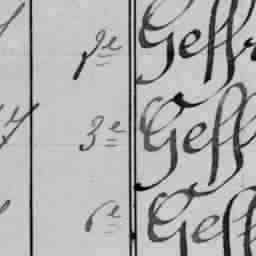 1e Geffr
3e Geff
6e Geff